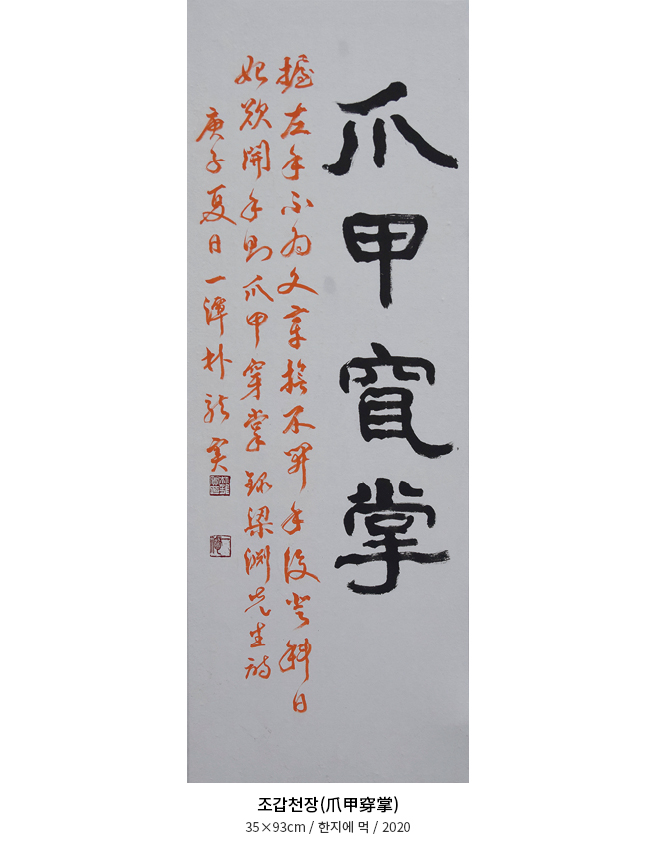 爪甲穿掌
握左手不为文章不开手後登科日
始欲開手則爪甲穿掌錄梁淵先生詩
庚子夏日一潭朴龍
조갑천장(爪甲穿掌)
35×93cm / 한지에 먹 / 2020